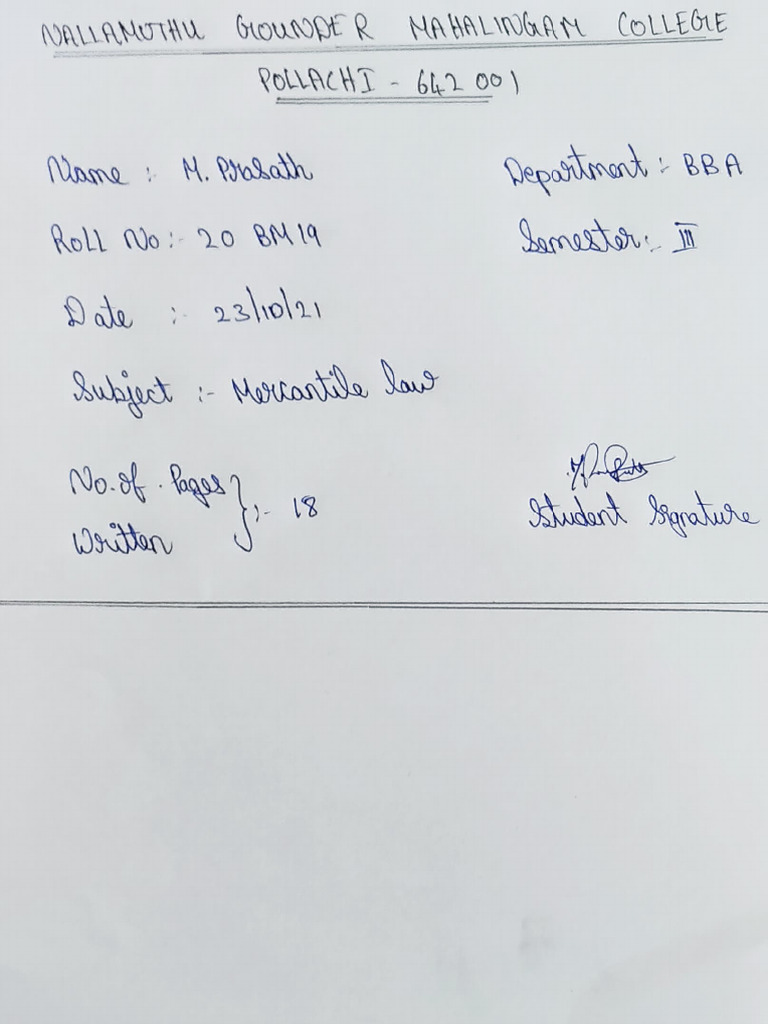 NALLAMUTHU GOUNDER MAHALINGAM COLLEGE
POLLACHI - 642 001
Name :- M. Prasath
Department :- BBA
Roll No :- 20 BM 19
Semester :- III
Date :- 23/10/21
Subject :- Mercantile law
No. of. Pages Written } :- 18
Student Signature